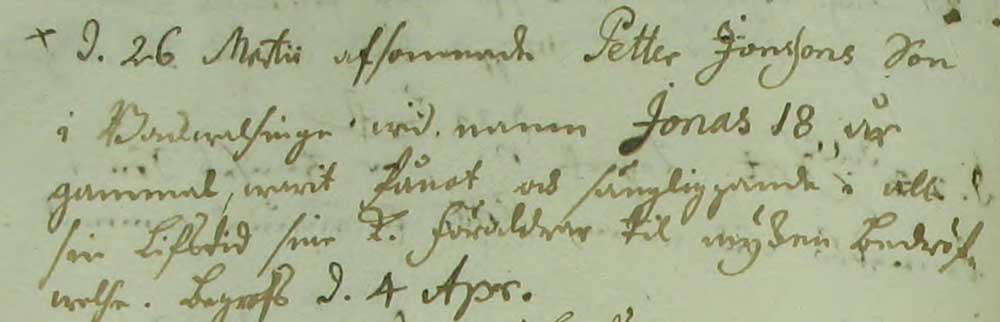 + D. 26 Martii afsomnade Petter Jonsons Son
i wid namn Jonas 18 åhr
gammal, warit fånot och sängliggande i all
sin Lifstid sine K. Föräldrar til mÿcken Bedröf-
welse. Begrofs d. 4 Apr.